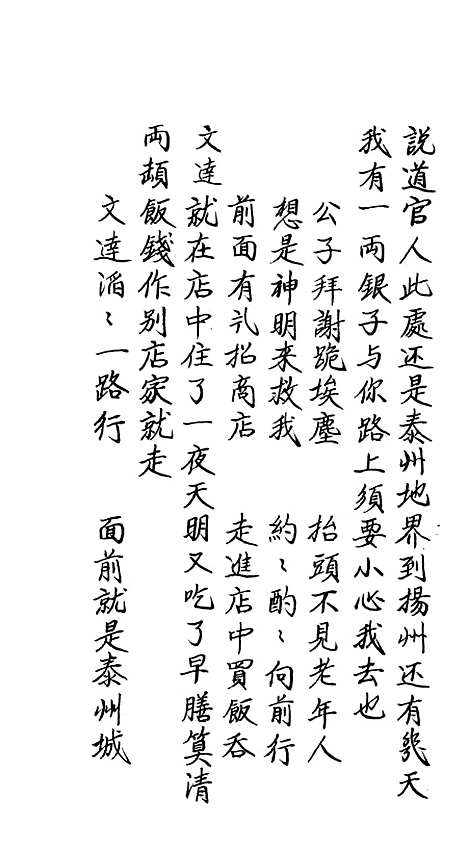 説道官人此處还是泰州地界到揚州还有幾天
我有一両銀子与你路上須要小心我去也
公子拜謝跪埃塵　抬頭不見老年人
想是神明来救我　約〻酌〻向前行
前面有礼招商店　走進店中買飯吞
文逹就在店中住了一夜天明又吃了早膳算清
両頓飯錢作别店家就走
文逹滔〻一路行　面前就是泰州城